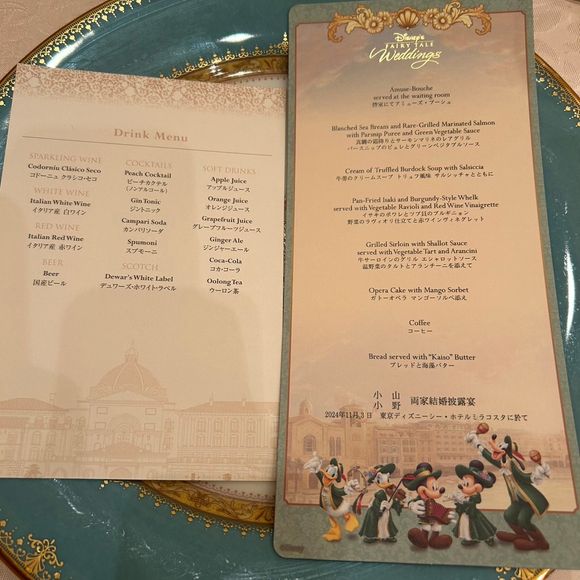 Drink Menu
SPARKLING WINE
Codorníu Clásico Seco
コドーニュ クラシコ・セコ
WHITE WINE
Italian White Wine
イタリア産 白ワイン
RED WINE
Italian Red Wine
イタリア産 赤ワイン
BEER
Beer
国産ビール
COCKTAILS
Peach Cocktail
ピーチカクテル
(ノンアルコール)
Gin Tonic
ジントニック
Campari Soda
カンパリソーダ
Spumoni
スプモーニ
SCOTCH
Dewar's White Label
デュワーズ・ホワイト・ラベル
SOFT DRINKS
Apple Juice
アップルジュース
Orange Juice
オレンジジュース
Grapefruit Juice
グレープフルーツジュース
Ginger Ale
ジンジャーエール
Coca-Cola
コカ・コーラ
Oolong Tea
ウーロン茶
Disney's
FAIRY TALE
Weddings
Amuse-Bouche
served at the waiting room
待室にてアミューズ・ブーシュ
Blanched Sea Bream and Rare-Grilled Marinated Salmon
with Parsnip Puree and Green Vegetable Sauce
真鯛の霜降りとサーモンマリネのレアグリル
パースニップのピュレとグリーンベジタブルソース
Cream of Truffled Burdock Soup with Salsiccia
牛蒡のクリームスープ トリュフ風味 サルシッチャとともに
Pan-Fried Isaki and Burgundy-Style Whelk
served with Vegetable Ravioli and Red Wine Vinaigrette
イサキのポワレとツブ貝のブルギニョン
野菜のラヴィオリ仕立てと赤ワインヴィネグレット
Grilled Sirloin with Shallot Sauce
served with Vegetable Tart and Arancini
牛サーロインのグリル エシャロットソース
温野菜のタルトとアランチーニを添えて
Opera Cake with Mango Sorbet
ガトーオペラ マンゴーソルベ添え
Coffee
コーヒー
Bread served with "Kaiso" Butter
ブレッドと海藻バター
小 山
小 野 両家結婚披露宴
2024年11月3日 東京ディズニーシー・ホテルミラコスタに於て